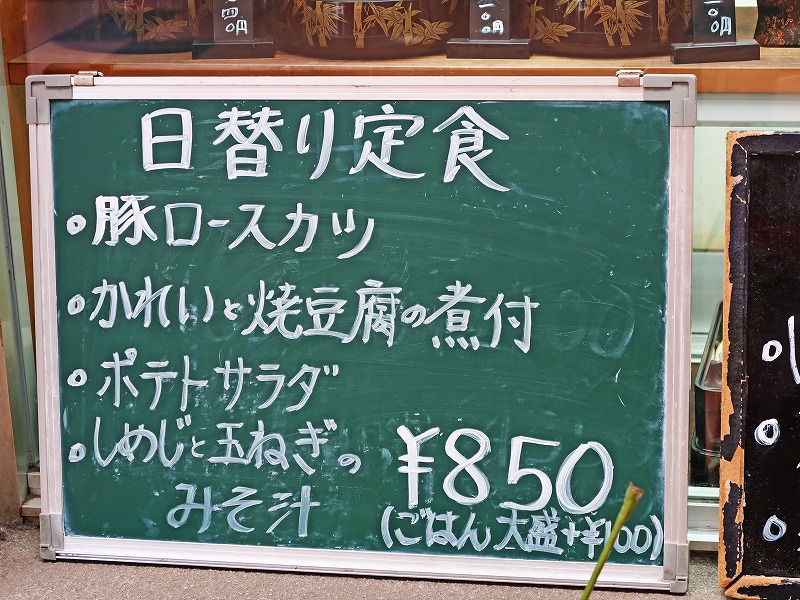 日替り定食
○豚ロースカツ
○かれいと焼豆腐の煮付
○ポテトサラダ
○しめじと玉ねぎの
みそ汁
¥850
(ごはん大盛+¥100)